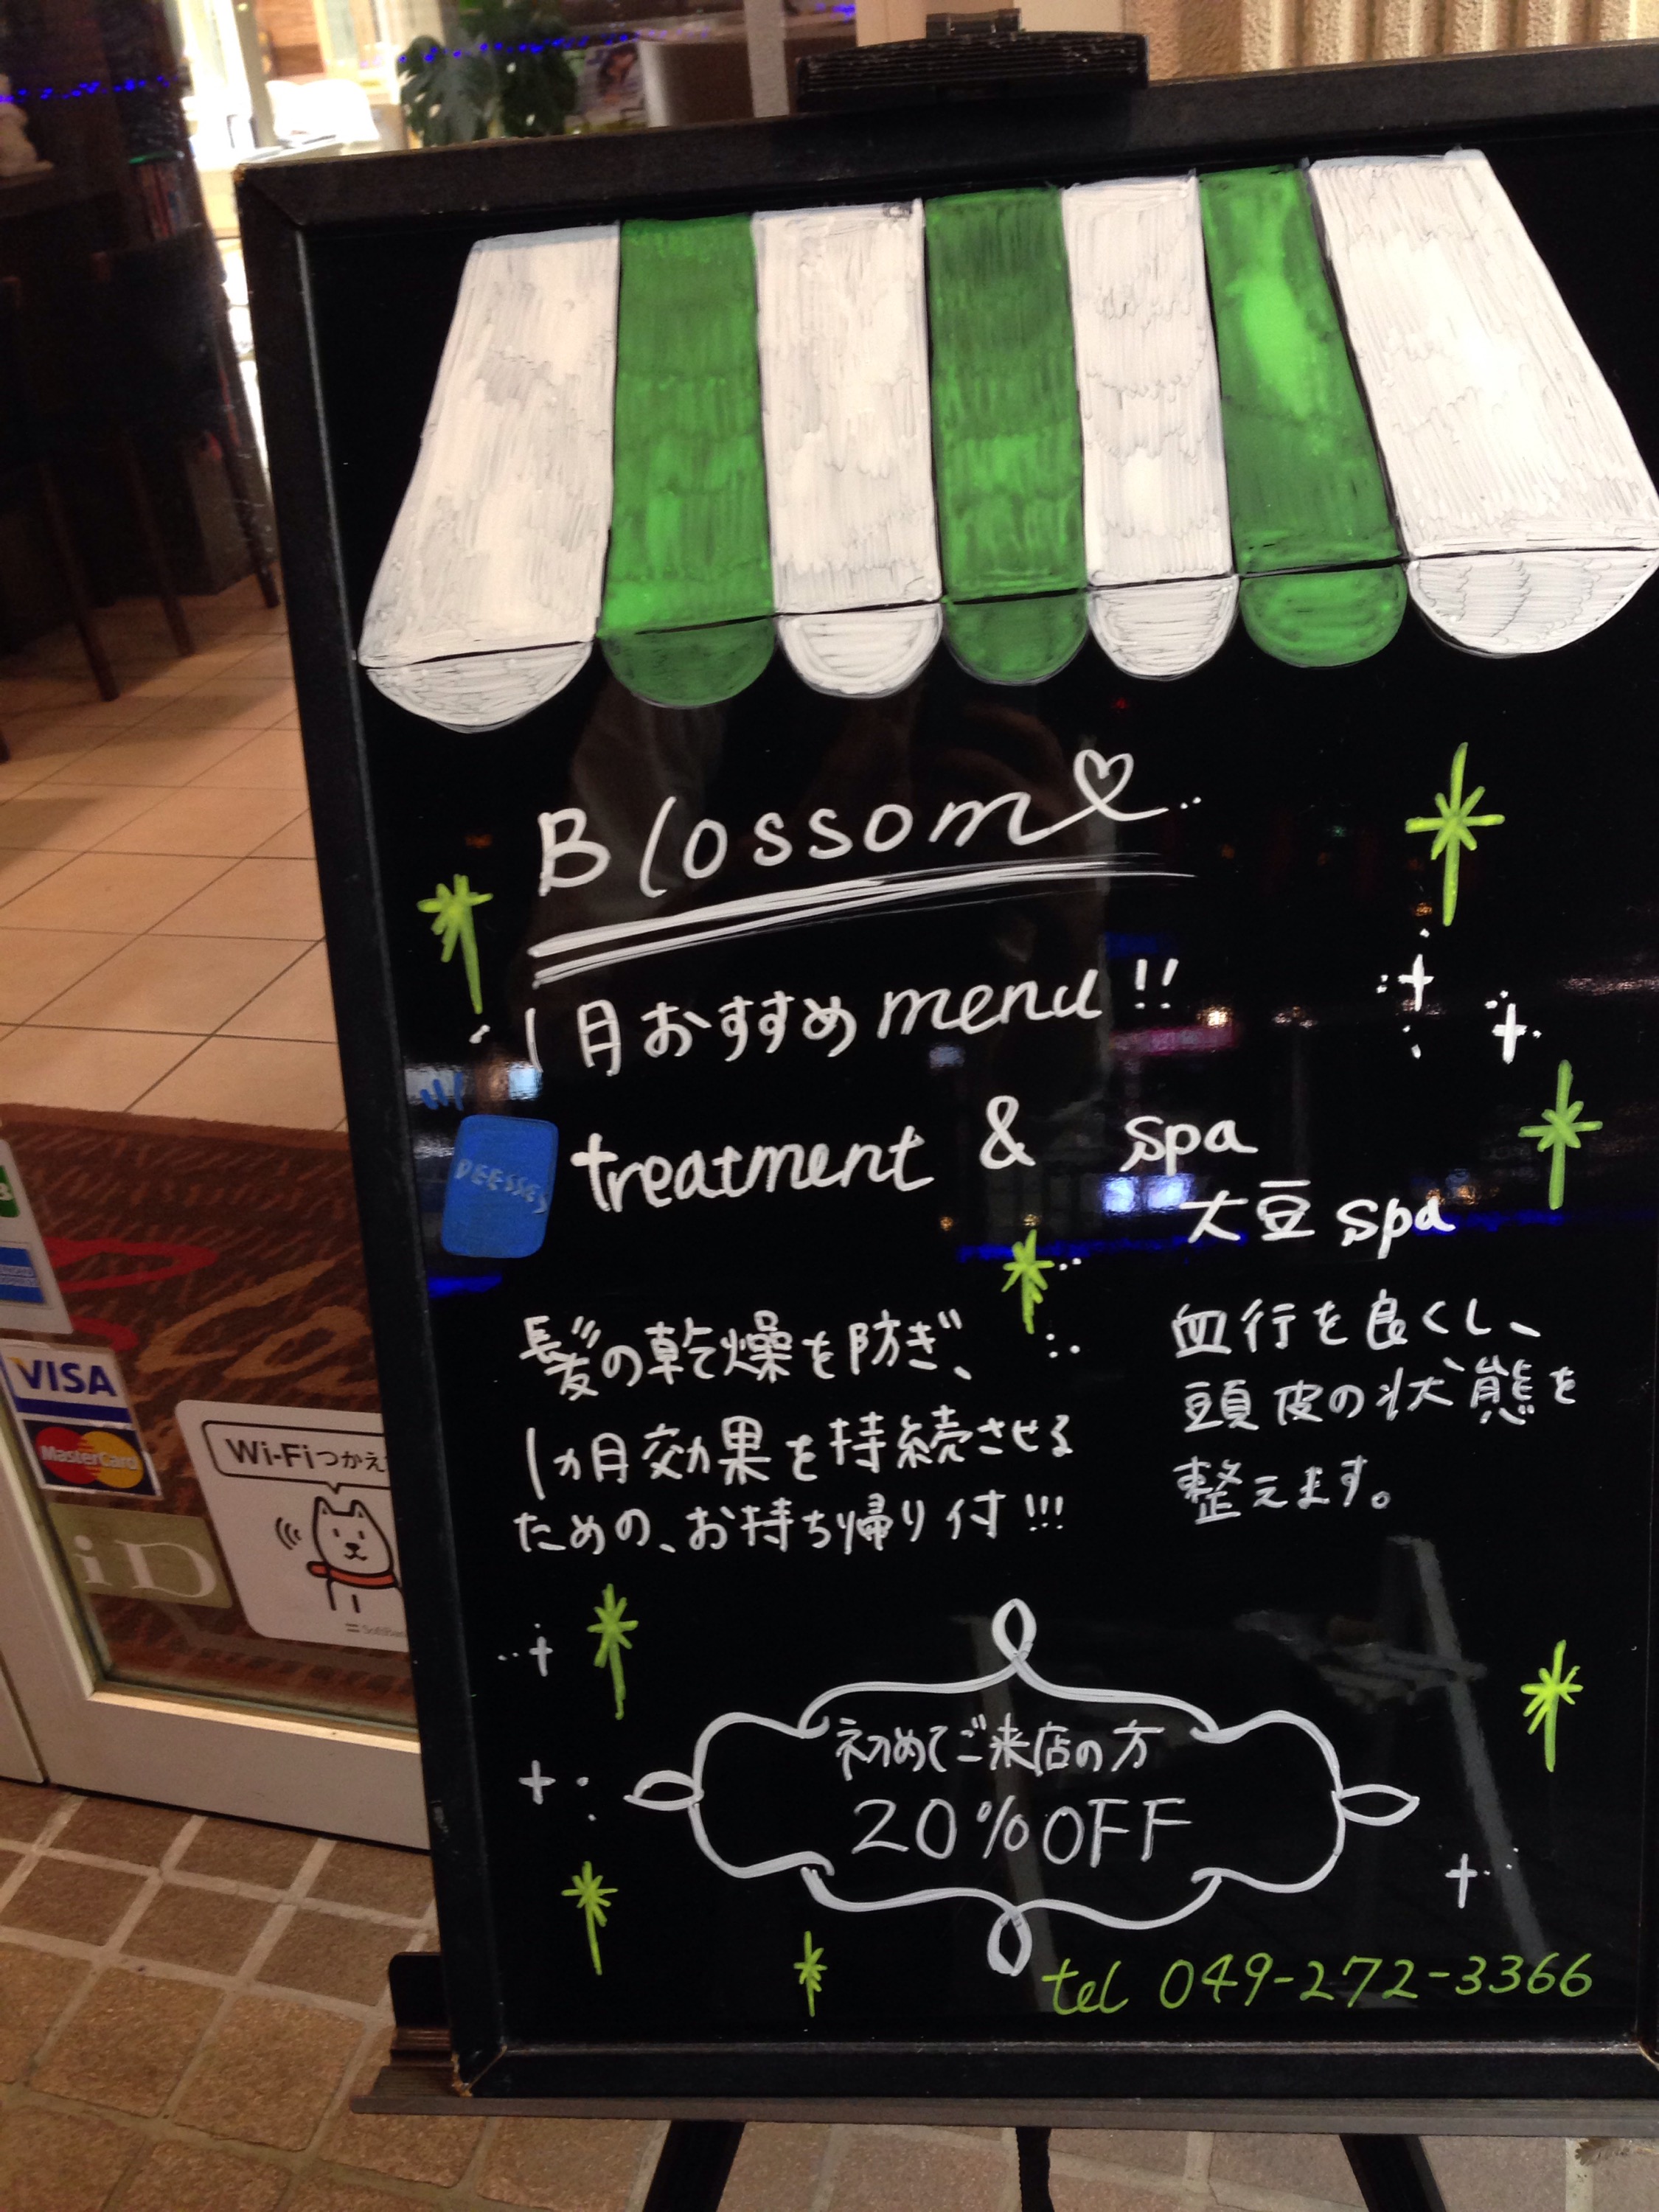 Blossom
1月おすすめmenu!!
DEESSES
treatment & spa
大豆spa
髪の乾燥を防ぎ、
1ヵ月効果を持続させる
ための、お持ち帰り付!!!
血行を良くし、
頭皮の状態を
整えます。
初めてご来店の方
20%OFF
tel 049-272-3366
VISA
MasterCard
iD
Wi-Fiつかえ